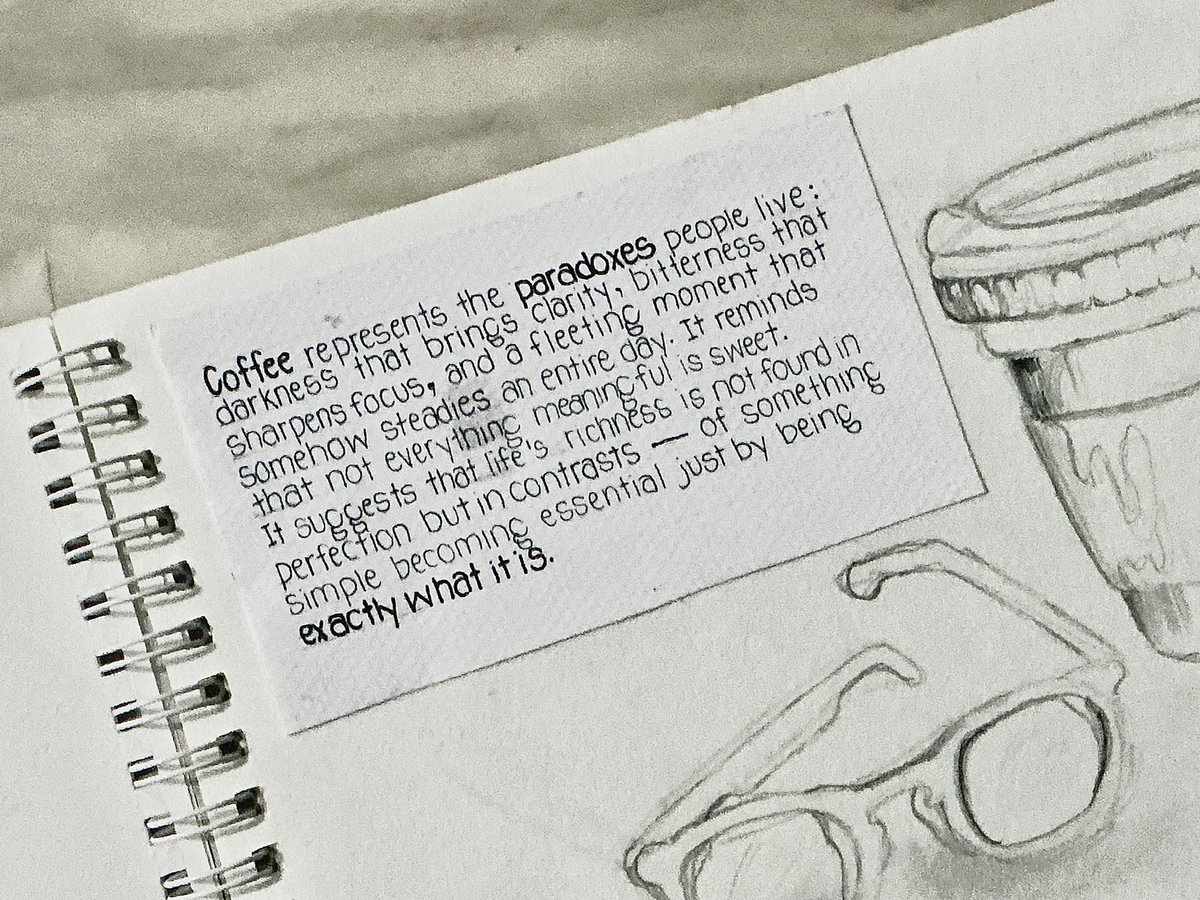 Coffee represents the paradoxes people live:
darkness that brings clarity, bitterness that
sharpens focus, and a fleeting moment that
somehow steadies an entire day. It reminds
that not everything meaningful is sweet.
It suggests that life's richness is not found in
perfection but in contrasts — of something
simple becoming essential just by being
exactly what it is.